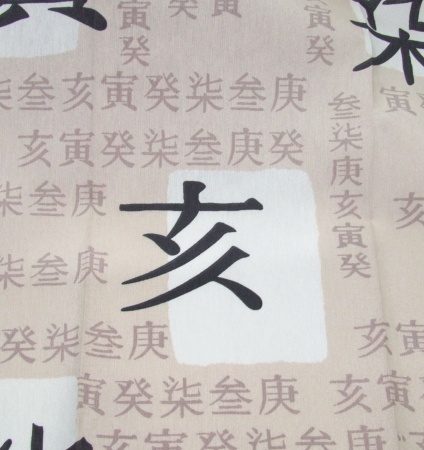 寅癸
寅
寅癸
柒
柒叁亥寅癸柒叁庚
寅
亥寅癸柒叁庚癸
叁柒庚亥寅癸
柒叁庚
亥
亥
柒叁庚
癸柒叁庚
亥寅
寅癸柒叁庚
亥寅癸
亥寅癸柒叁庚
亥寅